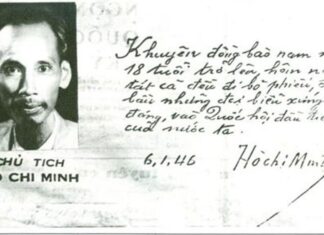 Khuyên đồng bào nam n
18 tuổi trở lên, hôm n
tất cả đều đi bỏ phiếu, đ
bầu những đại biểu xứng
đáng vào Quốc hội đầu t
của nước ta.
6.1.46 Hồ Chí Minh
HỦ TỊCH
Ồ CHI MINH